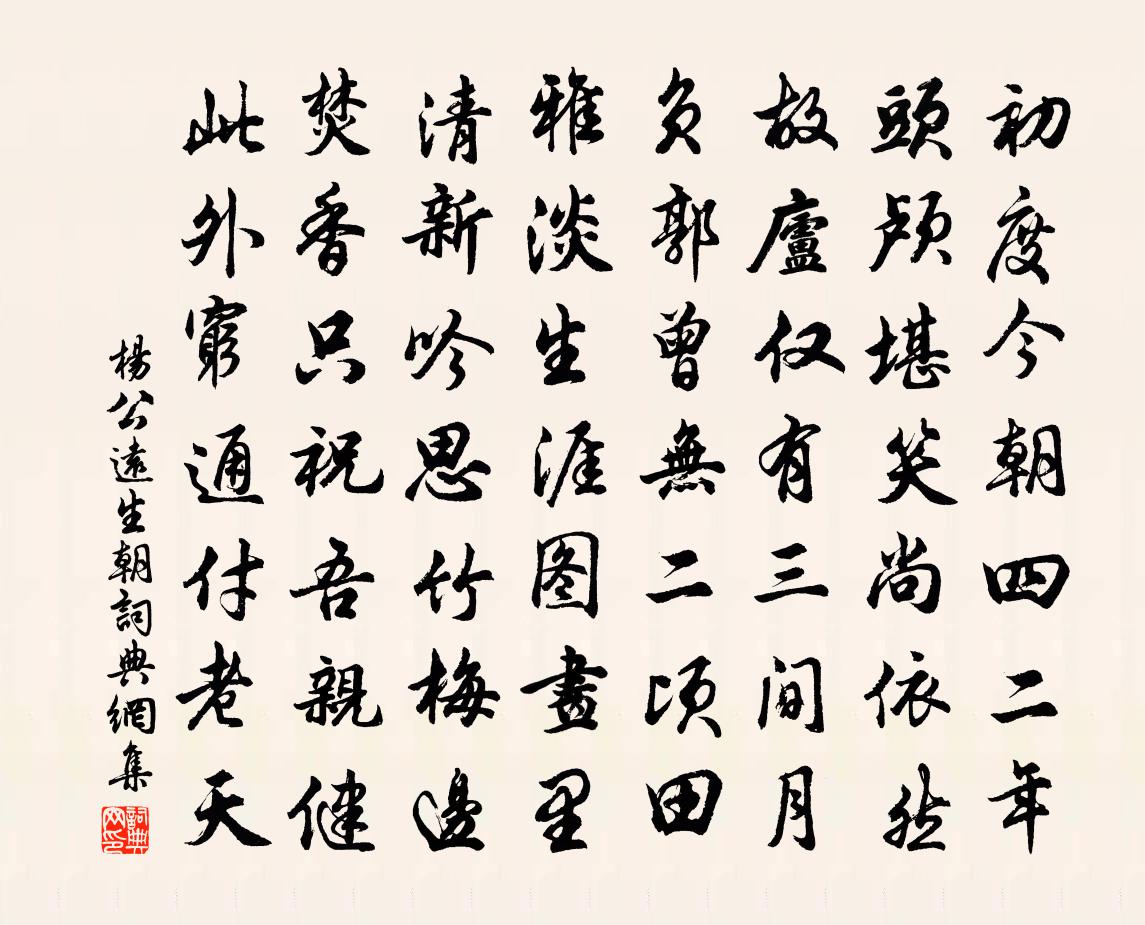 初度今朝四二年
頭顱堪笑尚依然
故廬仅有三間月
负郭曾無二頃田
雅淡生涯图畫里
清新吟思竹梅邊
焚香只祝吾親健
此外窮通付老天
楊公遠生朝詞典網集
詞典网印